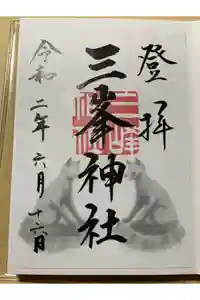 登拝
三峯神社
令和二年六月十六日